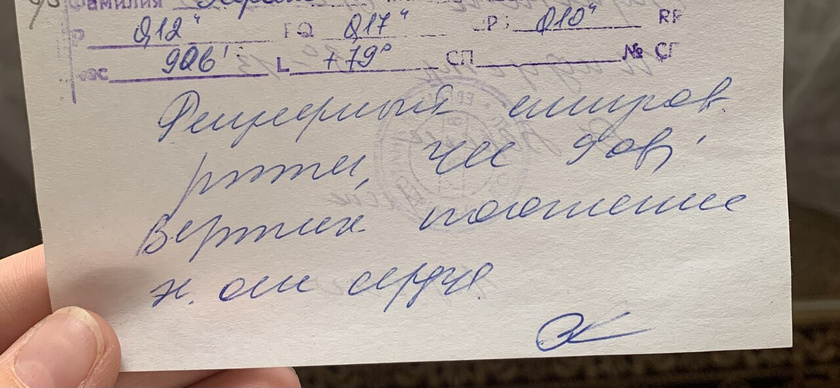 Фамилия
0,12" PQ 0,17" 0,10" RR
ЧСС 90б' L +79° СП № СГ
Регулярный синусов.
ритм, чсс 90в/'
Вертик. положение
э. оси сердца